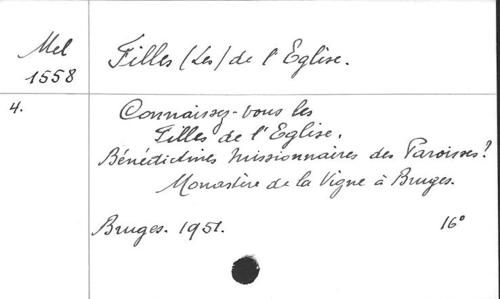 Mel
1558
Filles (Les) de l'Eglise.
4.
Connaissez-vous les
Filles de l'Eglise,
Bénédictines Missionnaires des Paroisses?
Monastère de la Vigne à Bruges.
Bruges. 1951.
16°